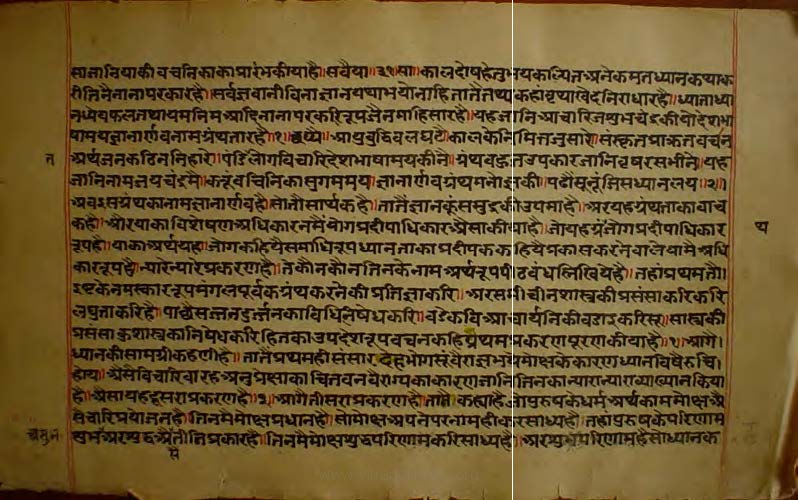 सातानियाकी वचनिकाका प्रारंभ कीया है॥ सवैया॥ ३१॥ सा॥ कालदोष हेतु भय कल्पित अनेक मत ध्यान कथा क
रीतिनै नाना परकार है॥ सर्वज्ञ वानी विना ज्ञान यथा भयो नाहि तातै तथ्य कहां वृथा खेद निराधार है॥ ध्याता ध्या
न ध्येय फल तथा यम निम आदि नाना परकरि नूप जैन माहि सार है॥ यह जानि आचारिज शुभचंद्र कीयो देश भा
षामय ज्ञानार्णव नाम ग्रंथ तार है॥ १॥ छप्पै॥ आयु बुद्धि बल घटे काल के निमित्त नुसारे॥ संस्कृत प्राक्रत वचन
अर्थ जन कठिन निहारे॥ पंडित लोग विचारि देश भाषामय कीनै॥ ग्रंथ बहुत उपकार जानि वृष रस भीने॥ यह
जानि नाम जयचंद्र मै॥ करूं वचनिका सुगममय॥ ज्ञानार्णव ग्रंथ मनोज्ञ की॥ पढौ सुनूं तिस ध्यान लय॥ २॥
अब इस ग्रंथका नाम ज्ञानार्णव है॥ सो तौ सार्थक है॥ तातै ज्ञानकूं समुद्र की उपमा है॥ अर यह ग्रंथ ताका वाच
क है॥ और याका विशेषण अधिकार नमै योग प्रदीपाधिकार औसा कीया है॥ जो यह ग्रंथ योग प्रदीपाधिकार
रूप है॥ याका अर्थ यह॥ जोग कहिये समाधि रूप ध्यान ताका प्रदीपक कहिये प्रकास करने वाले यामै अधि
कार रूप है॥ न्यारे न्यारे प्रकरण है॥ ते कौन कौन तिनके नाम अर्थ रूप पीठबंध लिखिये है॥ तहां प्रथम तौ।
इष्ट के नमस्कार रूप मंगल पूर्वक ग्रंथ करने की प्रतिज्ञा करि॥ अर समीचीन शास्त्र की प्रसंसा करि करि
लघुता करि है॥ पाछै सज्जन दुर्ज्जन का विधि निषेध करि॥ बडे कवि आचार्यनि की बडाइ करि
प्रसंसा कुशास्त्र का निषेध करि हित का उपदेश रूप वचन कहि प्रथम प्रकरण पूरण कीया है॥ १॥ आगै।
ध्यान की सामग्री कहणी है॥ तातै प्रथम ही संसार देह भोग सूं वैराज्ञ भये मोक्ष के कारण ध्यान विषै रुचि।
होय॥ औसै विचारि बारह अनुप्रेक्षा का चिंतवन वैराग्य का कारण जानि तिनका न्यारा न्यारा व्याख्यान किया
है॥ औसा यह दूसरा प्रकरण है॥ २॥ आगै तीसरा प्रकरण है॥ तामै कह्या है जो पुरुष के धर्म अर्थ काम मोक्ष औ
सै चारि प्रयोजन है॥ तिनमै मोक्ष प्रधान है॥ सो मोक्ष अपने परनाम ही करि साध्य है॥ तहां पुरुष के परिणाम
शुभ अर शुद्ध औ तीन प्रकार है॥ तिनमै मोक्ष शुद्ध परिणाम करि साध्य है॥ अर शुभ परिणाम है सो ध्यान क